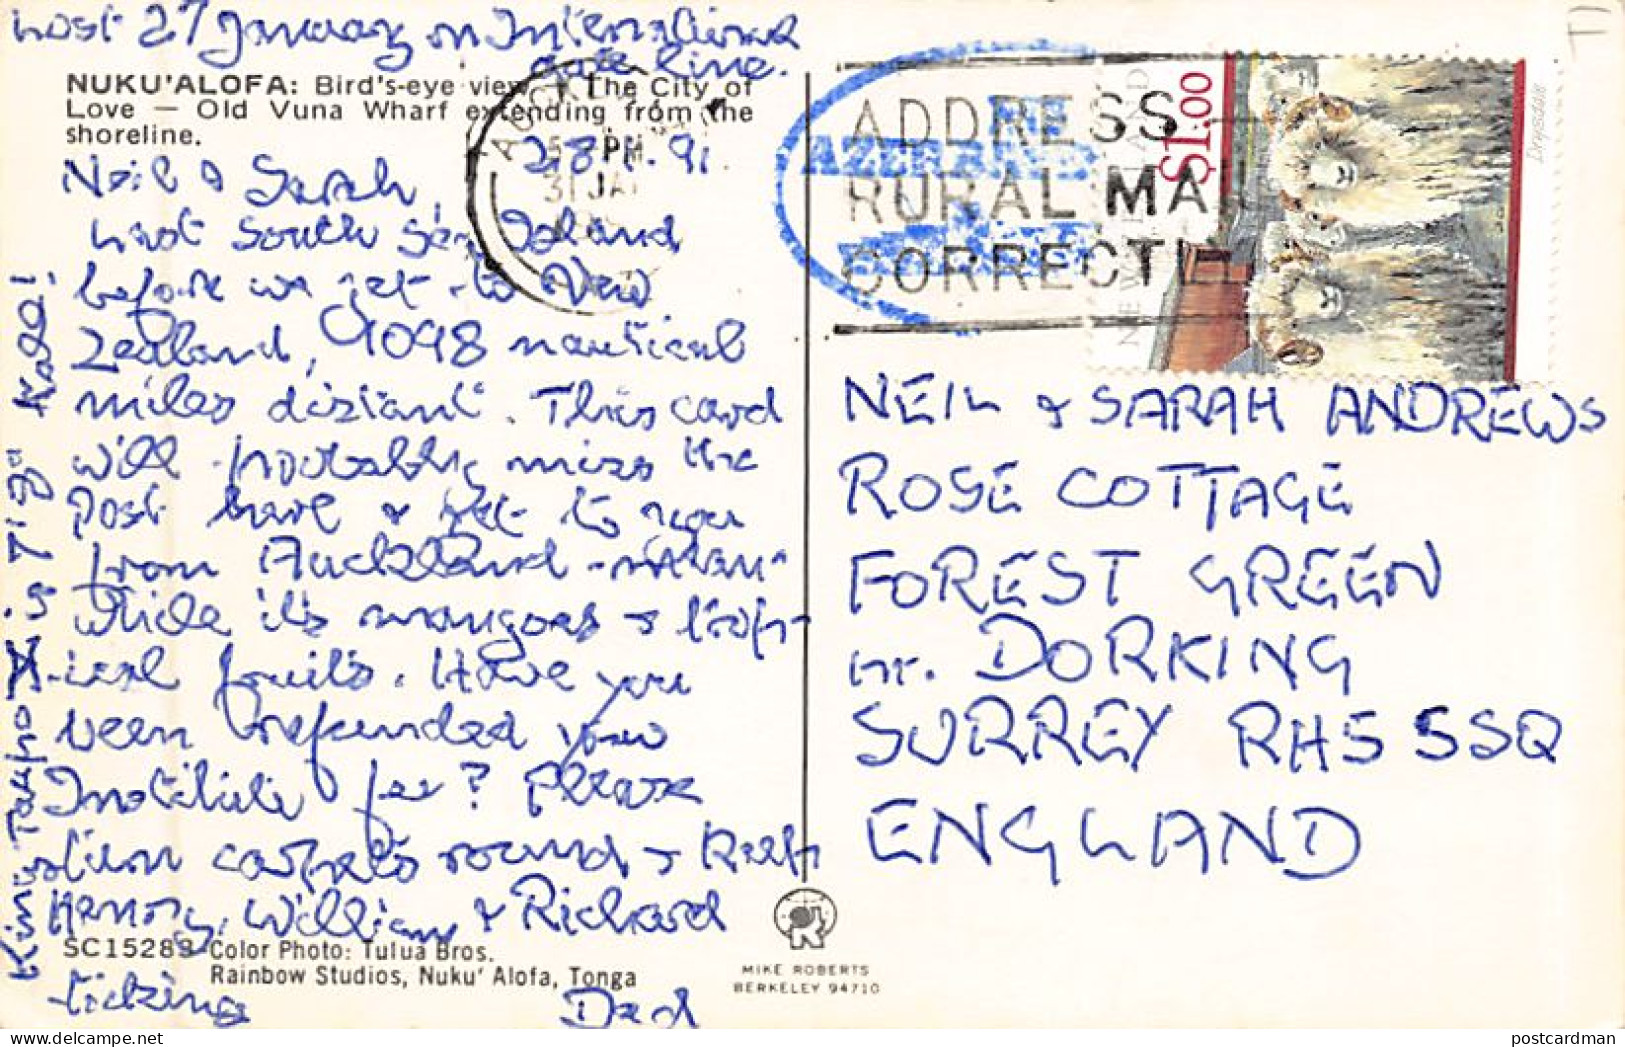 Lost 27 January on International
date line.
NUKU'ALOFA: Bird's-eye view The City of
Love — Old Vuna Wharf extending from the
shoreline.
28.1.91
Neil & Sarah,
Last South Sea Island
before we get to New
Zealand, 1098 nautical
miles distant. This card
will probably miss the
post here & get to you
from Auckland - mean-
while it's mangoes & trop-
ical fruits. Have you
been refunded your
Institute fee? Please
turn carpets round & keep
Henry, William & Richard
ticking Dad
King Taupo is "7 is
SC15289 Color Photo: Tulua Bros.
Rainbow Studios, Nuku' Alofa, Tonga
MIKE ROBERTS
BERKELEY 94710
PM
31 JA
ADDRESS
RURAL MAIL
CORRECTLY
NEW ZEALAND
$1.00
Drysdale
T1
NEIL & SARAH ANDREWS
ROSE COTTAGE
FOREST GREEN
nr. DORKING
SURREY RH5 5SQ
ENGLAND
postcardman